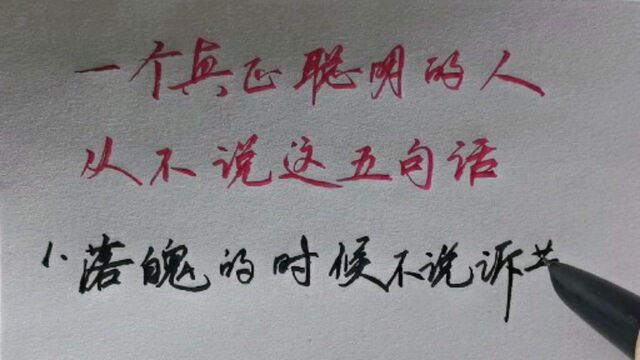 一个真正聪明的人
从不说这五句话
1.落魄的时候不说诉